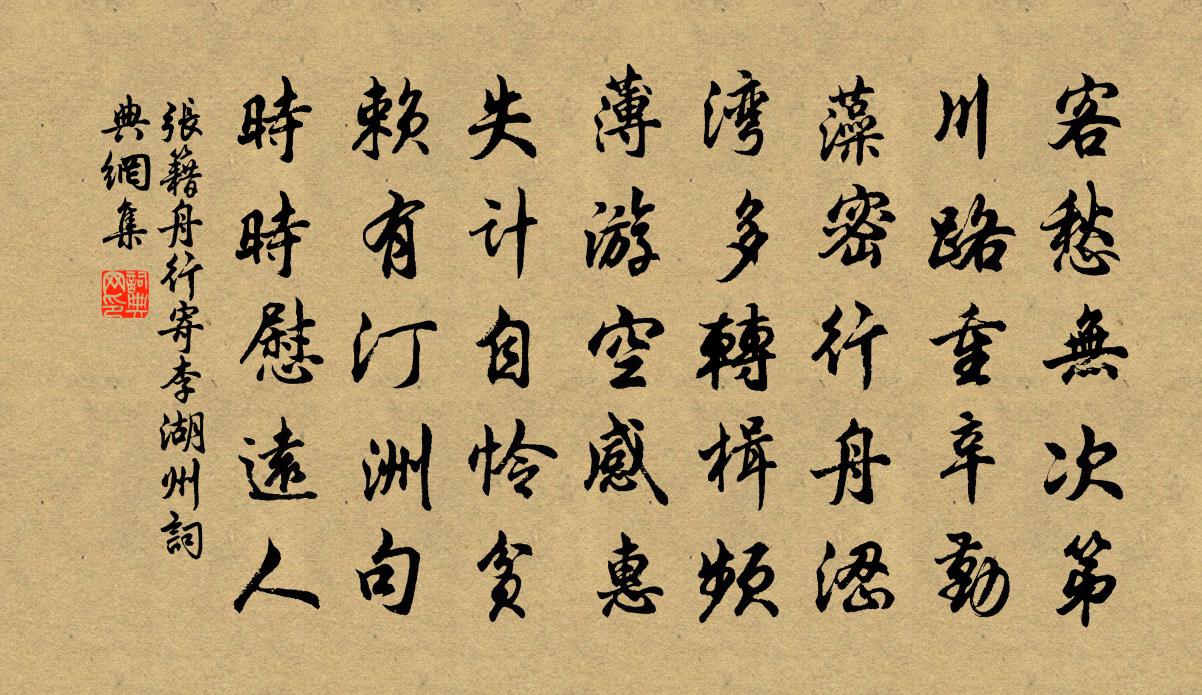 客愁無次第
川路重辛勤
藻密行舟澀
湾多轉楫頻
薄游空感惠
失計自怜貧
賴有汀洲句
時時慰遠人
張籍舟行寄李湖州詞
典網集
詞典
网印